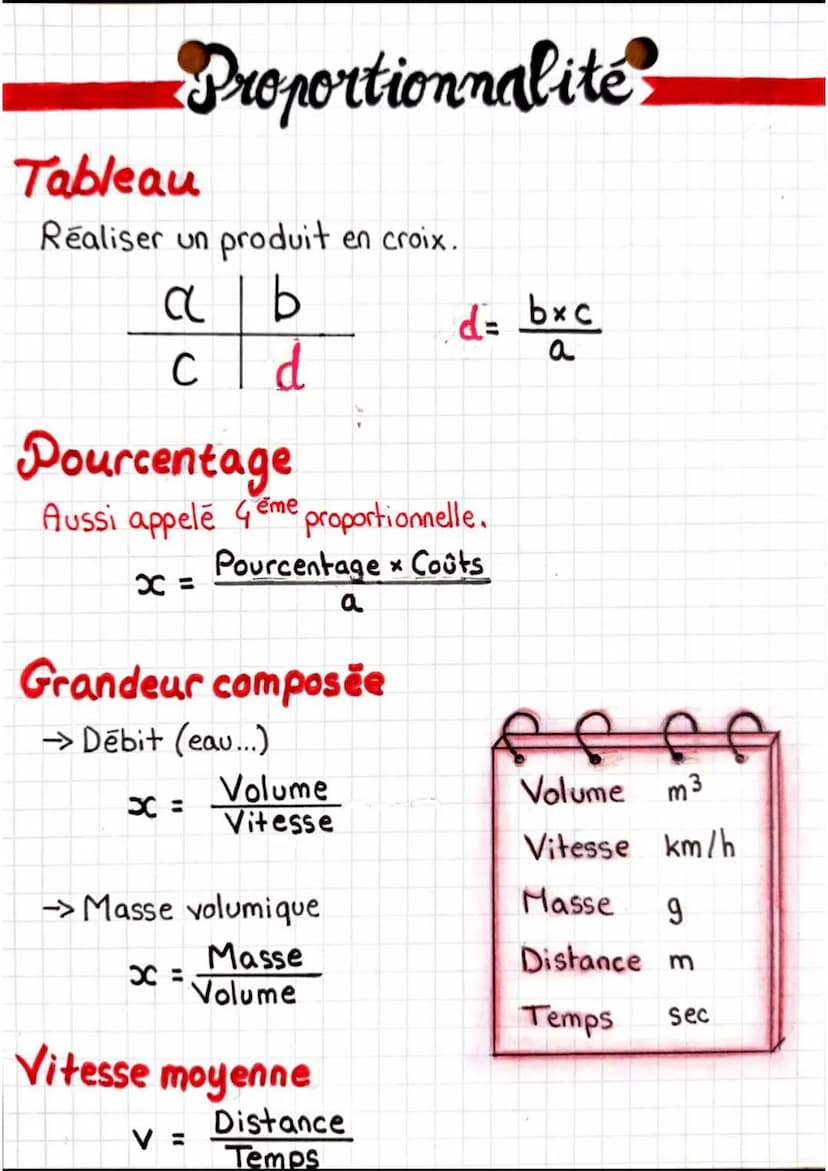 Proportionnalité
Tableau
Réaliser un produit en croix.
a | b
c | d
d = b×c / a
Pourcentage
Aussi appelé 4ème proportionnelle.
x = Pourcentage × Coûts / a
Grandeur composée
→ Débit (eau...)
x = Volume / Vitesse
→ Masse volumique
x = Masse / Volume
Volume m³
Vitesse km/h
Masse g
Distance m
Temps sec
Vitesse moyenne
v = Distance / Temps